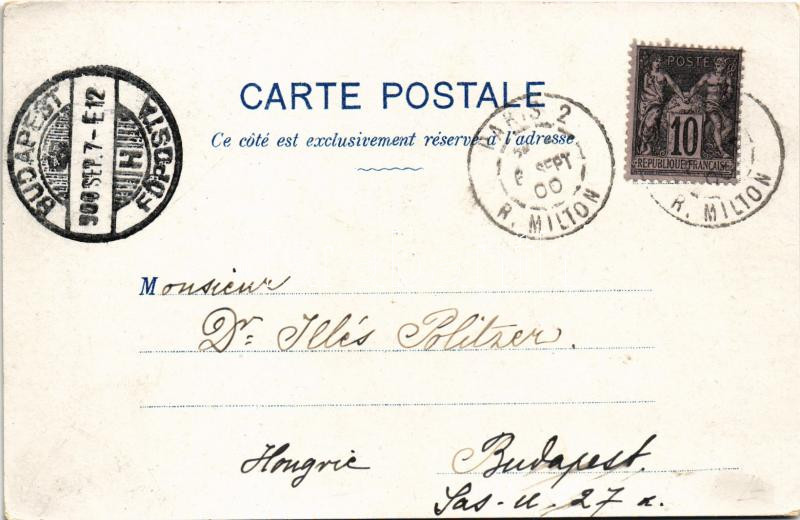 CARTE POSTALE
Ce côté est exclusivement réservé à l'adresse
BUDAPEST
900 SEP. 7 - E 12
H
FŐPOSTA
PARIS 2
6 SEPT
00
R. MILTON
POSTE
10
RÉPUBLIQUE FRANÇAISE
R. MILTON
Monsieur
Dr. Illés Politzer.
Hongrie Budapest.
Sas-u. 27